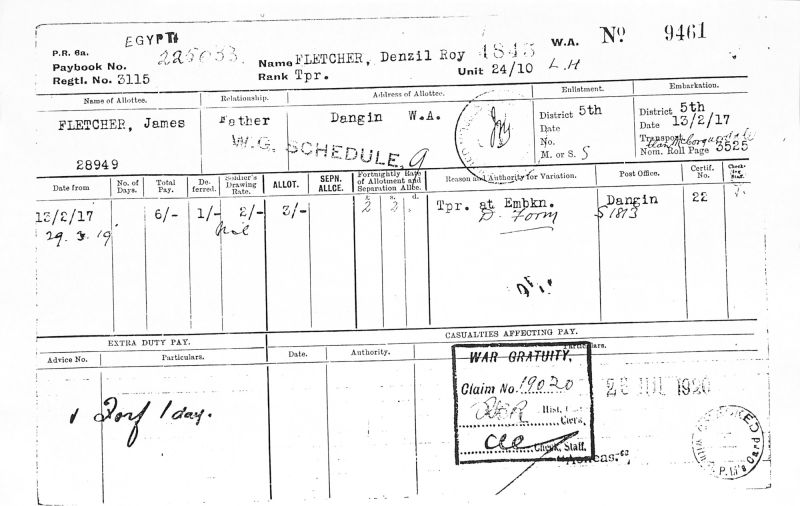 EGYPT
P.R. 6a.
Paybook No. 225033.
Regtl. No. 3115
Name FLETCHER, Denzil Roy 4843
Rank Tpr.
Unit 24/10 L.H
W.A. No 9461
Name of Allottee. Relationship. Address of Allottee. Enlistment. Embarkation.
FLETCHER, James
28949
Father
Dangin W.A.
W.G. SCHEDULE. 9
District 5th
Date
No.
M. or S. S
District 5th
Date 13/2/17
Transport
Nom. Roll Page 3525
Date from No. of Days. Total Pay. Deferred. Soldier's Drawing Rate. ALLOT. SEPN. ALLCE. Fortnightly Rate of Allotment and Separation Allce. Reason and Authority for Variation. Post Office. Certif. No. Checking Staff.
£ s. d.
13/2/17 6/- 1/- 2/- 3/- 2 2 Tpr. at Embkn. Dangin 22
29.3.19 Nil D. Form S1873
EXTRA DUTY PAY. CASUALTIES AFFECTING PAY.
Advice No. Particulars. Date. Authority. Particulars.
Forf 1 day.
WAR GRATUITY.
Claim No. 19020
Hist.
Clerk.
Check, Staff.
1920
CHECKED
with P.M's Card